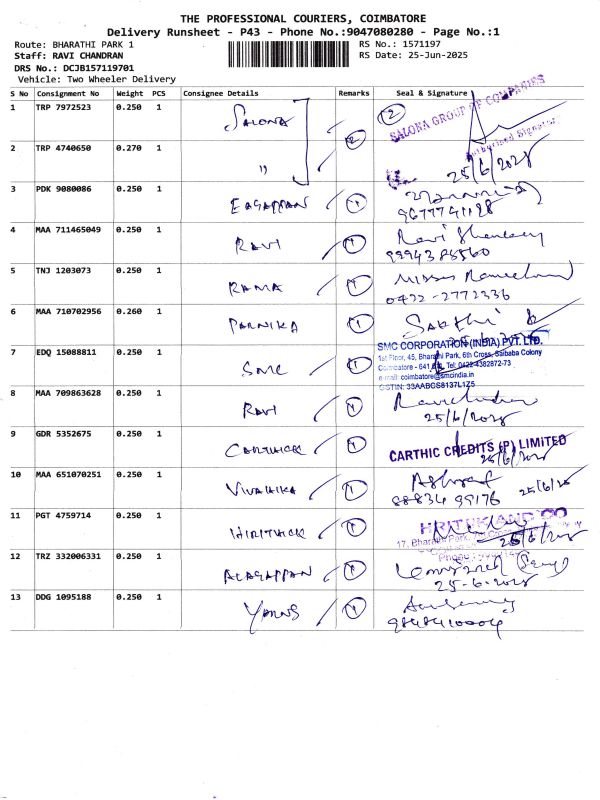 THE PROFESSIONAL COURIERS, COIMBATORE
Delivery Runsheet - P43 - Phone No.:9047080280 - Page No.:1
Route: BHARATHI PARK 1 RS No.: 1571197
Staff: RAVI CHANDRAN RS Date: 25-Jun-2025
DRS No.: DCJB157119701
Vehicle: Two Wheeler Delivery
S No Consignment No Weight PCS Consignee Details Remarks Seal & Signature
1 TRP 7972523 0.250 1 SALONA 2 2 SALONA GROUP OF COMPANIES
Authorised Signatory
2 TRP 4740650 0.270 1 " 25/6/2025
3 PDK 9080086 0.250 1 EAGAPPAN 1
9677741128
4 MAA 711465049 0.250 1 RAVI 1 Ravi Shankar
9994385560
5 TNJ 1203073 0.250 1 RAMA 1
0422-2772336
6 MAA 710702956 0.260 1 PARNIKA 1 Sakthi
7 EDQ 15088811 0.250 1 SMC 1 SMC CORPORATION (INDIA) PVT. LTD.
1st Floor, 45, Bharathi Park, 6th Cross, Saibaba Colony
Coimbatore - 641 Tel: 0422-4382872-73
e-mail: coimbatore@smcindia.in
GSTIN: 33AABCS8137L1Z5
8 MAA 709863628 0.250 1 RAVI 1 Ravichandran
25/6/2025
9 GDR 5352675 0.250 1 CARTHICK 1 CARTHIC CREDITS (P) LIMITED
25/6/2025
10 MAA 651070251 0.250 1 VIVAHIKA 1 Ashraf
88834 99176 25/6/25
11 PGT 4759714 0.250 1 HIRITHICK 1 HRITHIK AND CO
17, Bharathi Park, Cross
25/6/2025
Phone
12 TRZ 332006331 0.250 1 ALAGAPPAN 1
25-6-2025
13 DDG 1095188 0.250 1 YARNS 1